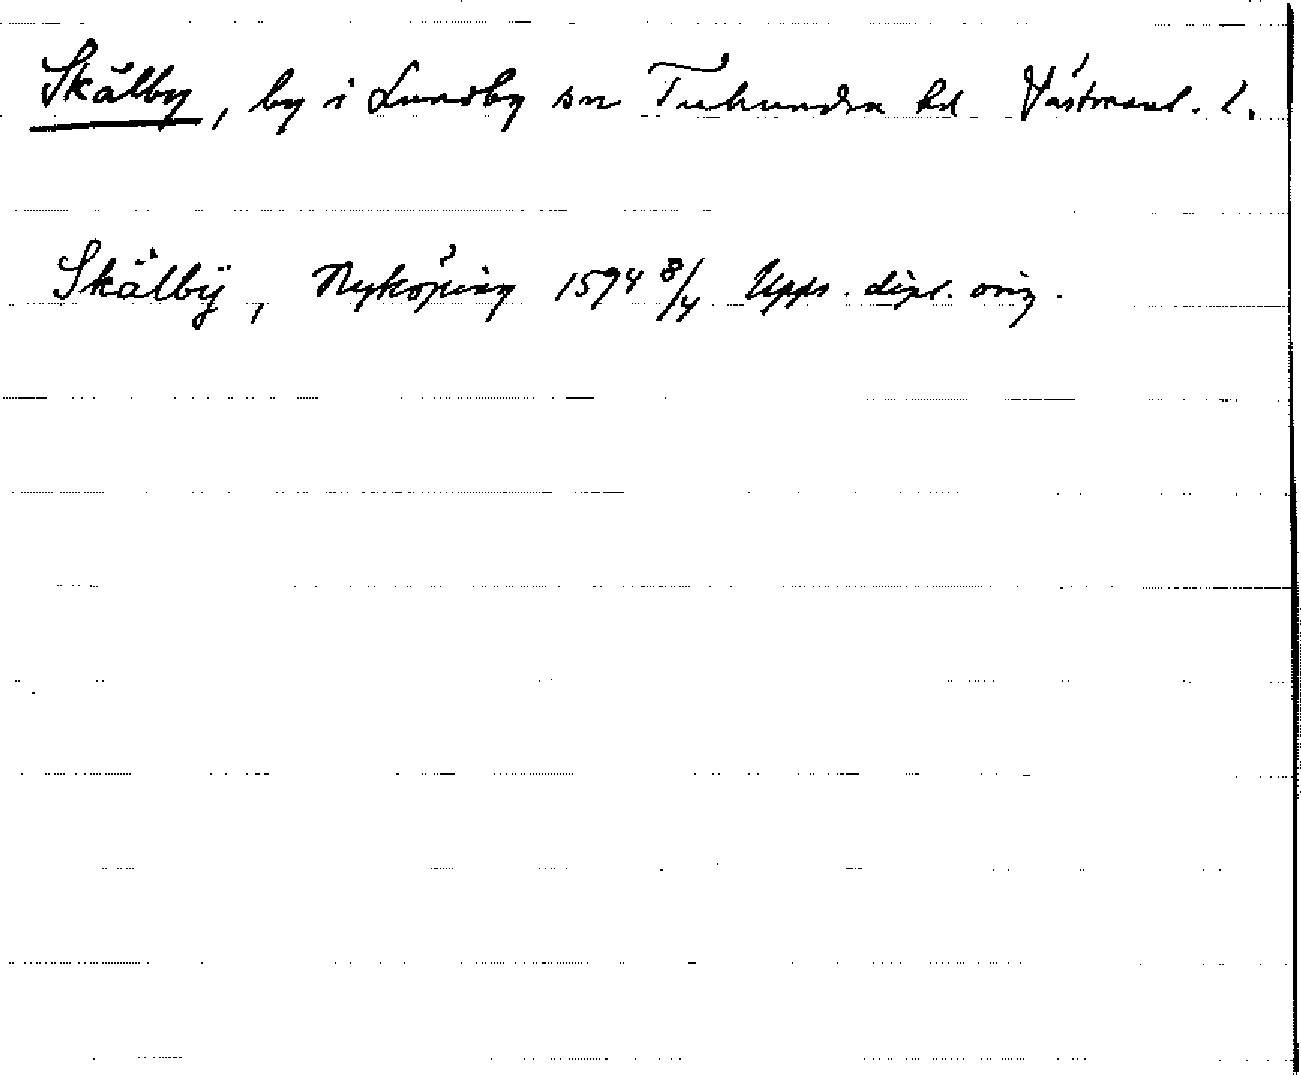 Skälby, by i Lundby sn Tuhundra hd Västmanl. l.
Skälbÿ, Nyköping 1594 8/4 Upps. dipl. orig.